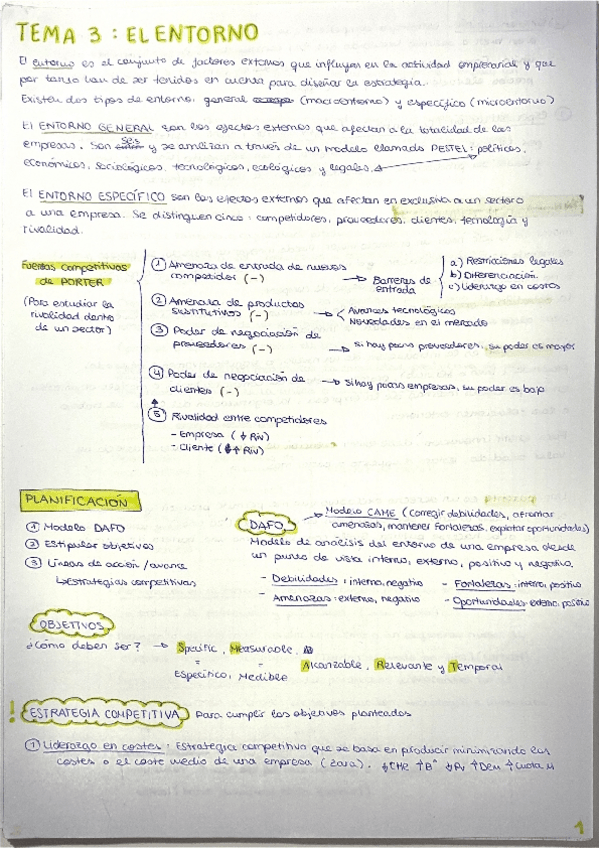 TEMA 3: EL ENTORNO
El entorno es el conjunto de factores externos que influyen en la actividad empresarial y que
por tanto han de ser tenidos en cuenta para diseñar la estrategia.
Existen dos tipos de entorno: general (macroentorno) y específico (microentorno)
El ENTORNO GENERAL son los efectos externos que afectan a la totalidad de las
empresas. Son seis y se analizan a través de un modelo llamado PESTEL: políticos,
económicos, sociológicos, tecnológicos, ecológicos y legales.
El ENTORNO ESPECÍFICO son los efectos externos que afectan en exclusiva a un sector o
a una empresa. Se distinguen cinco: competidores, proveedores, clientes, tecnología y
rivalidad.
Fuerzas competitivas
de PORTER
(Para estudiar la
rivalidad dentro
de un sector)
① Amenaza de entrada de nuevos
competidor (-) → Barreras de
entrada
a) Restricciones legales
b) Diferenciación
c) Liderazgo en costos
② Amenaza de productos
sustitutivos (-) → Avances tecnológicos
Novedades en el mercado
③ Poder de negociación de
proveedores (-) → si hay pocos proveedores, su poder es mayor
④ Poder de negociación de
clientes (-) → Si hay pocas empresas, su poder es bajo
⑤ Rivalidad entre competidores
- Empresa (↓ Riv)
- Cliente (↑ Riv)
PLANIFICACIÓN
① Modelo DAFO
② Estipular objetivos
③ Líneas de acción / avance
↳ estrategias competitivas
DAFO → Modelo CAME (corregir debilidades, afrontar
amenazas, mantener fortalezas, explotar oportunidades)
Modelo de análisis del entorno de una empresa desde
un punto de vista interno, externo, positivo y negativo.
- Debilidades: interno, negativo
- Fortalezas: interno, positivo
- Amenazas: externo, negativo
- Oportunidades: externo, positivo
OBJETIVOS
¿Cómo deben ser? → Specific, Measurable,
Específico, Medible
Alcanzable, Relevante y Temporal
! ESTRATEGIA COMPETITIVA Para cumplir los objetivos planteados
① Liderazgo en costes: Estrategia competitiva que se basa en producir minimizando los
costes o el coste medio de una empresa (Zara). ↓CMe ↑Bº ↓Pv ↑Dem ↑Cuota M
1